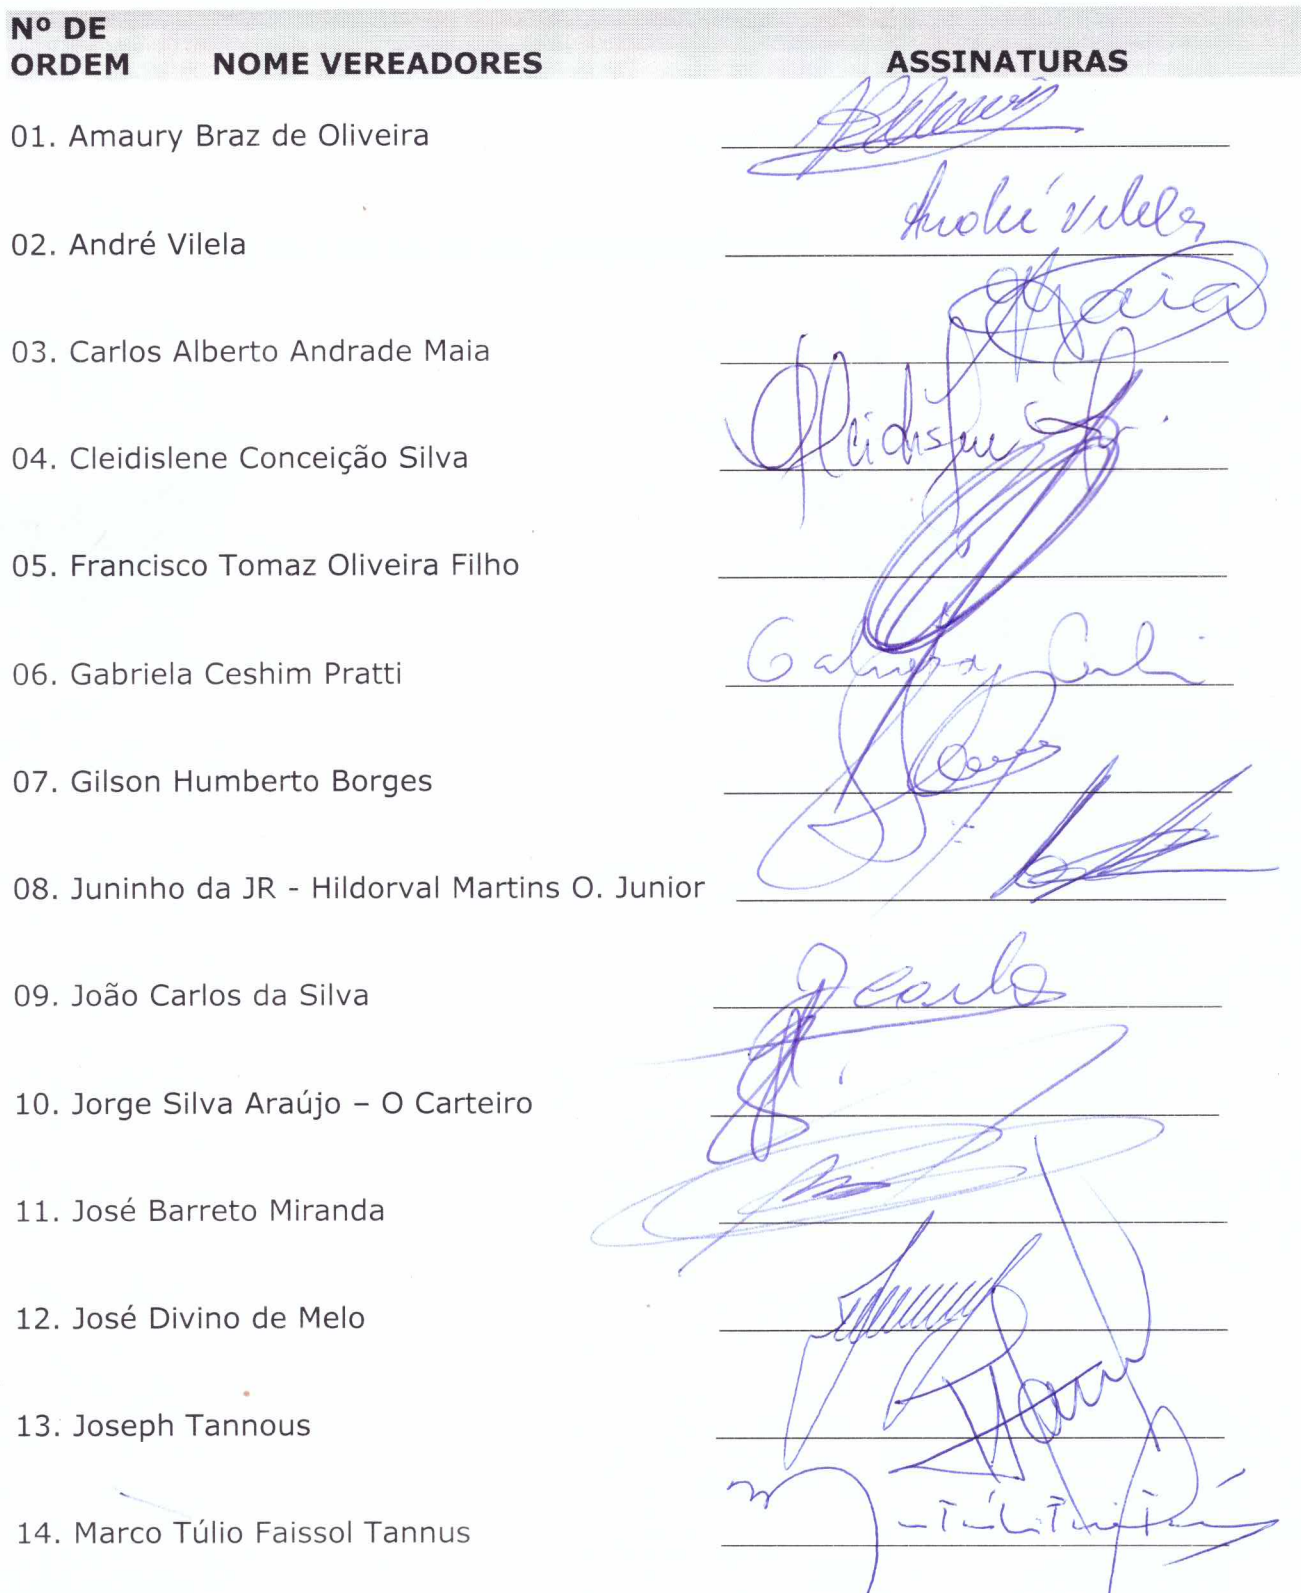 Nº DE
ORDEM NOME VEREADORES ASSINATURAS
01. Amaury Braz de Oliveira
02. André Vilela André Vilela
03. Carlos Alberto Andrade Maia Maia
04. Cleidislene Conceição Silva
05. Francisco Tomaz Oliveira Filho
06. Gabriela Ceshim Pratti
07. Gilson Humberto Borges
08. Juninho da JR - Hildorval Martins O. Junior
09. João Carlos da Silva Carlos
10. Jorge Silva Araújo – O Carteiro
11. José Barreto Miranda
12. José Divino de Melo
13. Joseph Tannous
14. Marco Túlio Faissol Tannus